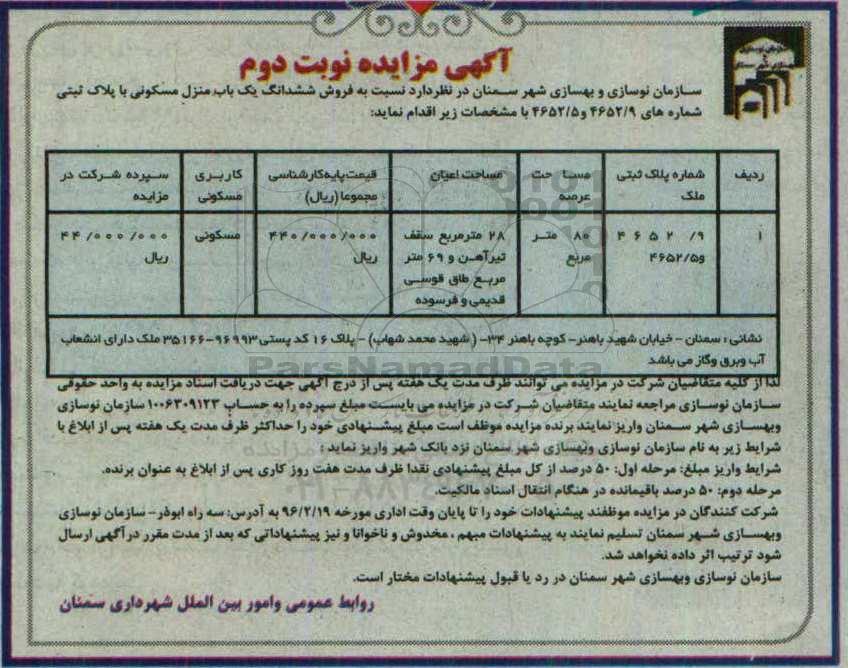 آگهی مزایده نوبت دوم
سازمان نوسازی و بهسازی شهر سمنان در نظردارد نسبت به فروش ششدانگ یک باب منزل مسکونی با پلاک ثبتی
شماره های ۴۶۵۲/۹ و ۴۶۵۲/۵ با مشخصات زیر اقدام نماید:
ردیف
شماره پلاک ثبتی
ملک
مساحت
عرصه
مساحت اعیان
قیمت پایه کارشناسی
مجموعا (ریال)
کاربری
مسکونی
سپرده شرکت در
مزایده
۱
۴۶۵۲/۹
و۴۶۵۲/۵
۸۰ متر
مربع
۲۸ مترمربع سقف
تیرآهن و ۶۹ متر
مربع طاق قوسی
قدیمی و فرسوده
۴۴۰/۰۰۰/۰۰۰
ریال
مسکونی
۴۴/۰۰۰/۰۰۰
ریال
نشانی : سمنان - خیابان شهید باهنر- کوچه باهنر ۳۴- ( شهید محمد شهاب) - پلاک ۱۶ کد پستی ۹۶۹۹۳-۳۵۱۶۶ ملک دارای انشعاب
آب وبرق وگاز می باشد
ParsNamadData
لذا از کلیه متقاضیان شرکت در مزایده می توانند ظرف مدت یک هفته پس از درج آگهی جهت دریافت اسناد مزایده به واحد حقوقی
سازمان نوسازی مراجعه نمایند متقاضیان شرکت در مزایده می بایست مبلغ سپرده را به حساب ۱۰۰۶۳۰۹۱۲۳ سازمان نوسازی
وبهسازی شهر سمنان واریز نمایند برنده مزایده موظف است مبلغ پیشنهادی خود را حداکثر ظرف مدت یک هفته پس از ابلاغ با
شرایط زیر به نام سازمان نوسازی وبهسازی شهر سمنان نزد بانک شهر واریز نماید :
شرایط واریز مبلغ: مرحله اول: ۵۰ درصد از کل مبلغ پیشنهادی نقدا ظرف مدت هفت روز کاری پس از ابلاغ به عنوان برنده.
مرحله دوم: ۵۰ درصد باقیمانده در هنگام انتقال اسناد مالکیت.
شرکت کنندگان در مزایده موظفند پیشنهادات خود را تا پایان وقت اداری مورخه ۹۶/۲/۱۹ به آدرس: سه راه ابوذر- سازمان نوسازی
وبهسازی شهر سمنان تسلیم نمایند به پیشنهادات مبهم ، مخدوش و ناخوانا و نیز پیشنهاداتی که بعد از مدت مقرر در آگهی ارسال
شود ترتیب اثر داده نخواهد شد.
سازمان نوسازی وبهسازی شهر سمنان در رد یا قبول پیشنهادات مختار است.
روابط عمومی وامور بین الملل شهرداری سمنان